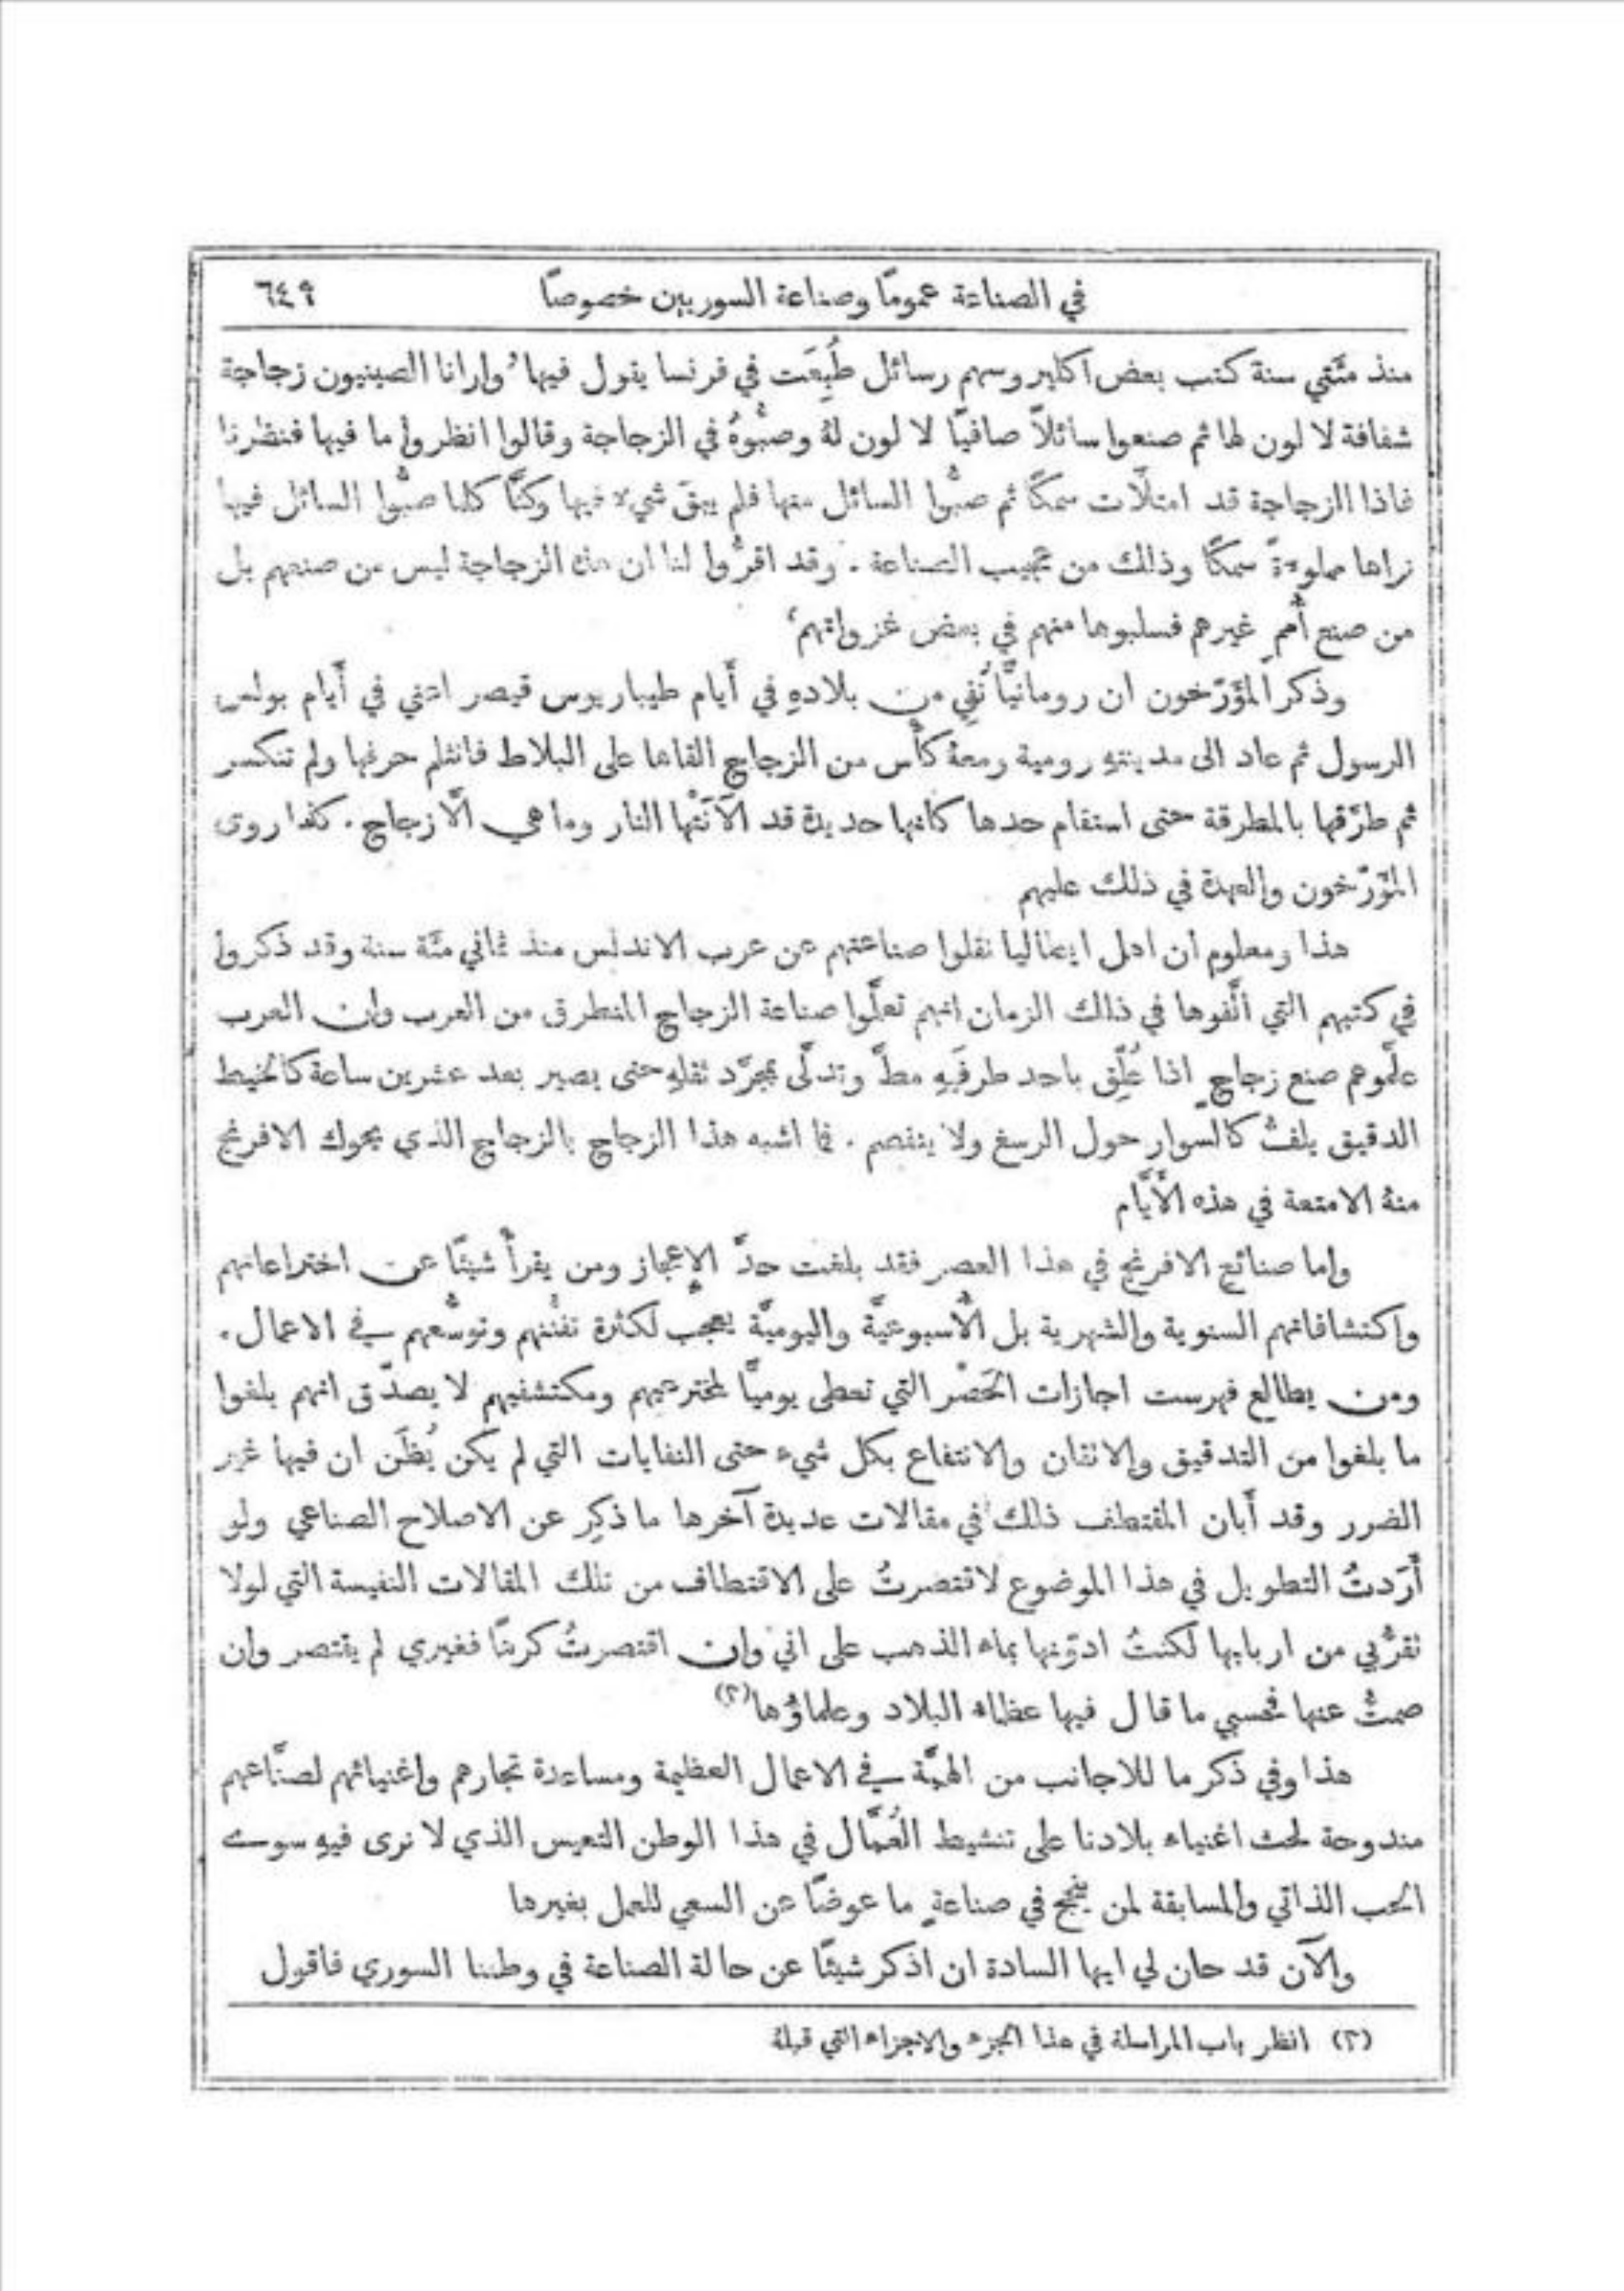 في الصناعة عمومًا وصناعة السوريين خصوصًا ٦٤٩
منذ مئتي سنة كتب بعض اكليروسهم رسائل طُبِعَت في فرنسا يقول فيها ’وارانا الصينيون زجاجة
شفافة لا لون لها ثم صنعوا سائلاً صافيًا لا لون لهُ وصبُّوهُ في الزجاجة وقالوا انظروا ما فيها فنظرنا
فاذا الزجاجة قد امتلَأت سمكًا ثم صبُّوا السائل منها فلم يبقَ شيءٌ فيها وكنَّا كلما صبُّوا السائل فيها
نراها مملوءةً سمكًا وذلك من عجيب الصناعة . وقد اقرُّوا لنا ان هذه الزجاجة ليس من صنعهم بل
من صنع أُممٍ غيرهم فسلبوها منهم في بعض غزواتهم‘
وذكر المؤَرّخون ان رومانيًّا نُفِي من بلادهِ في أَيام طيباريوس قيصر ايني في أَيام بولس
الرسول ثم عاد الى مدينتهِ رومية ومعهُ كأْس من الزجاج القاها على البلاط فانثلم حرفها ولم تنكسر
ثم طرَّقها بالمطرقة حتى استقام حدها كانها حديدة قد أَلاَنَتْها النار وما هي الَّا زجاج . كذا روى
المؤرّخون والعهدة في ذلك عليهم
هذا ومعلوم ان اهل ايطاليا نقلوا صناعتهم عن عرب الاندلس منذ ثماني مئة سنة وقد ذكروا
في كتبهم التي أَلَّفوها في ذلك الزمان انهم تعلَّموا صناعة الزجاج المنطرق من العرب وان العرب
علَّموهم صنع زجاجٍ اذا عُلِّق باحد طرفَيهِ مطَّ وتدلَّى بمجرَّد ثقلهِ حتى يصير بعد عشرين ساعة كالخيط
الدقيق يلفُّ كالسوار حول الرسغ ولا ينفصم . فما اشبه هذا الزجاج بالزجاج الذي يحوك الافرنج
منهُ الامتعة في هذه الأَيَّام
واما صنائع الافرنج في هذا العصر فقد بلغت حدَّ الإِعجاز ومن يقرأْ شيئًا عن اختراعاتهم
واكتشافاتهم السنوية والشهرية بل الأُسبوعيَّة واليوميَّة يعجب لكثرة تفنُّنهم وتوسُّعهم في الاعمال .
ومن يطالع فهرست اجازات الحَصْر التي تعطى يوميًّا لمخترعيهم ومكتشفيهم لا يصدّق انهم بلغوا
ما بلغوا من التدقيق والاتقان والانتفاع بكل شيء حتى النفايات التي لم يكن يُظَن ان فيها غير
الضرر وقد أَبان المقتطف ذلك في مقالات عديدة آخرها ما ذكِر عن الاصلاح الصناعي ولو
أَرَدتُ التطويل في هذا الموضوع لاقتصرتُ على الاقتطاف من تلك المقالات النفيسة التي لولا
تقرُّبي من اربابها لكنتُ ادوّنها بماء الذهب على اني وان اقتصرتُ كرهًا فغيري لم يقتصر وان
صمتُّ عنها فحسبي ما قال فيها عظماء البلاد وعلماؤها(٢)
هذا وفي ذكر ما للاجانب من الهمَّة في الاعمال العظيمة ومساعدة تجارهم واغنيائهم لصنَّاعهم
مندوحة لحث اغنياء بلادنا على تنشيط العُمَّال في هذا الوطن التعيس الذي لا نرى فيهِ سوى
الحب الذاتي والمسابقة لمن ينجح في صناعةٍ ما عوضًا عن السعي للعمل بغيرها
والآن قد حان لي ايها السادة ان اذكر شيئًا عن حالة الصناعة في وطننا السوري فاقول
(٢) انظر باب المراسلة في هذا الجزء والاجزاء التي قبلهُ